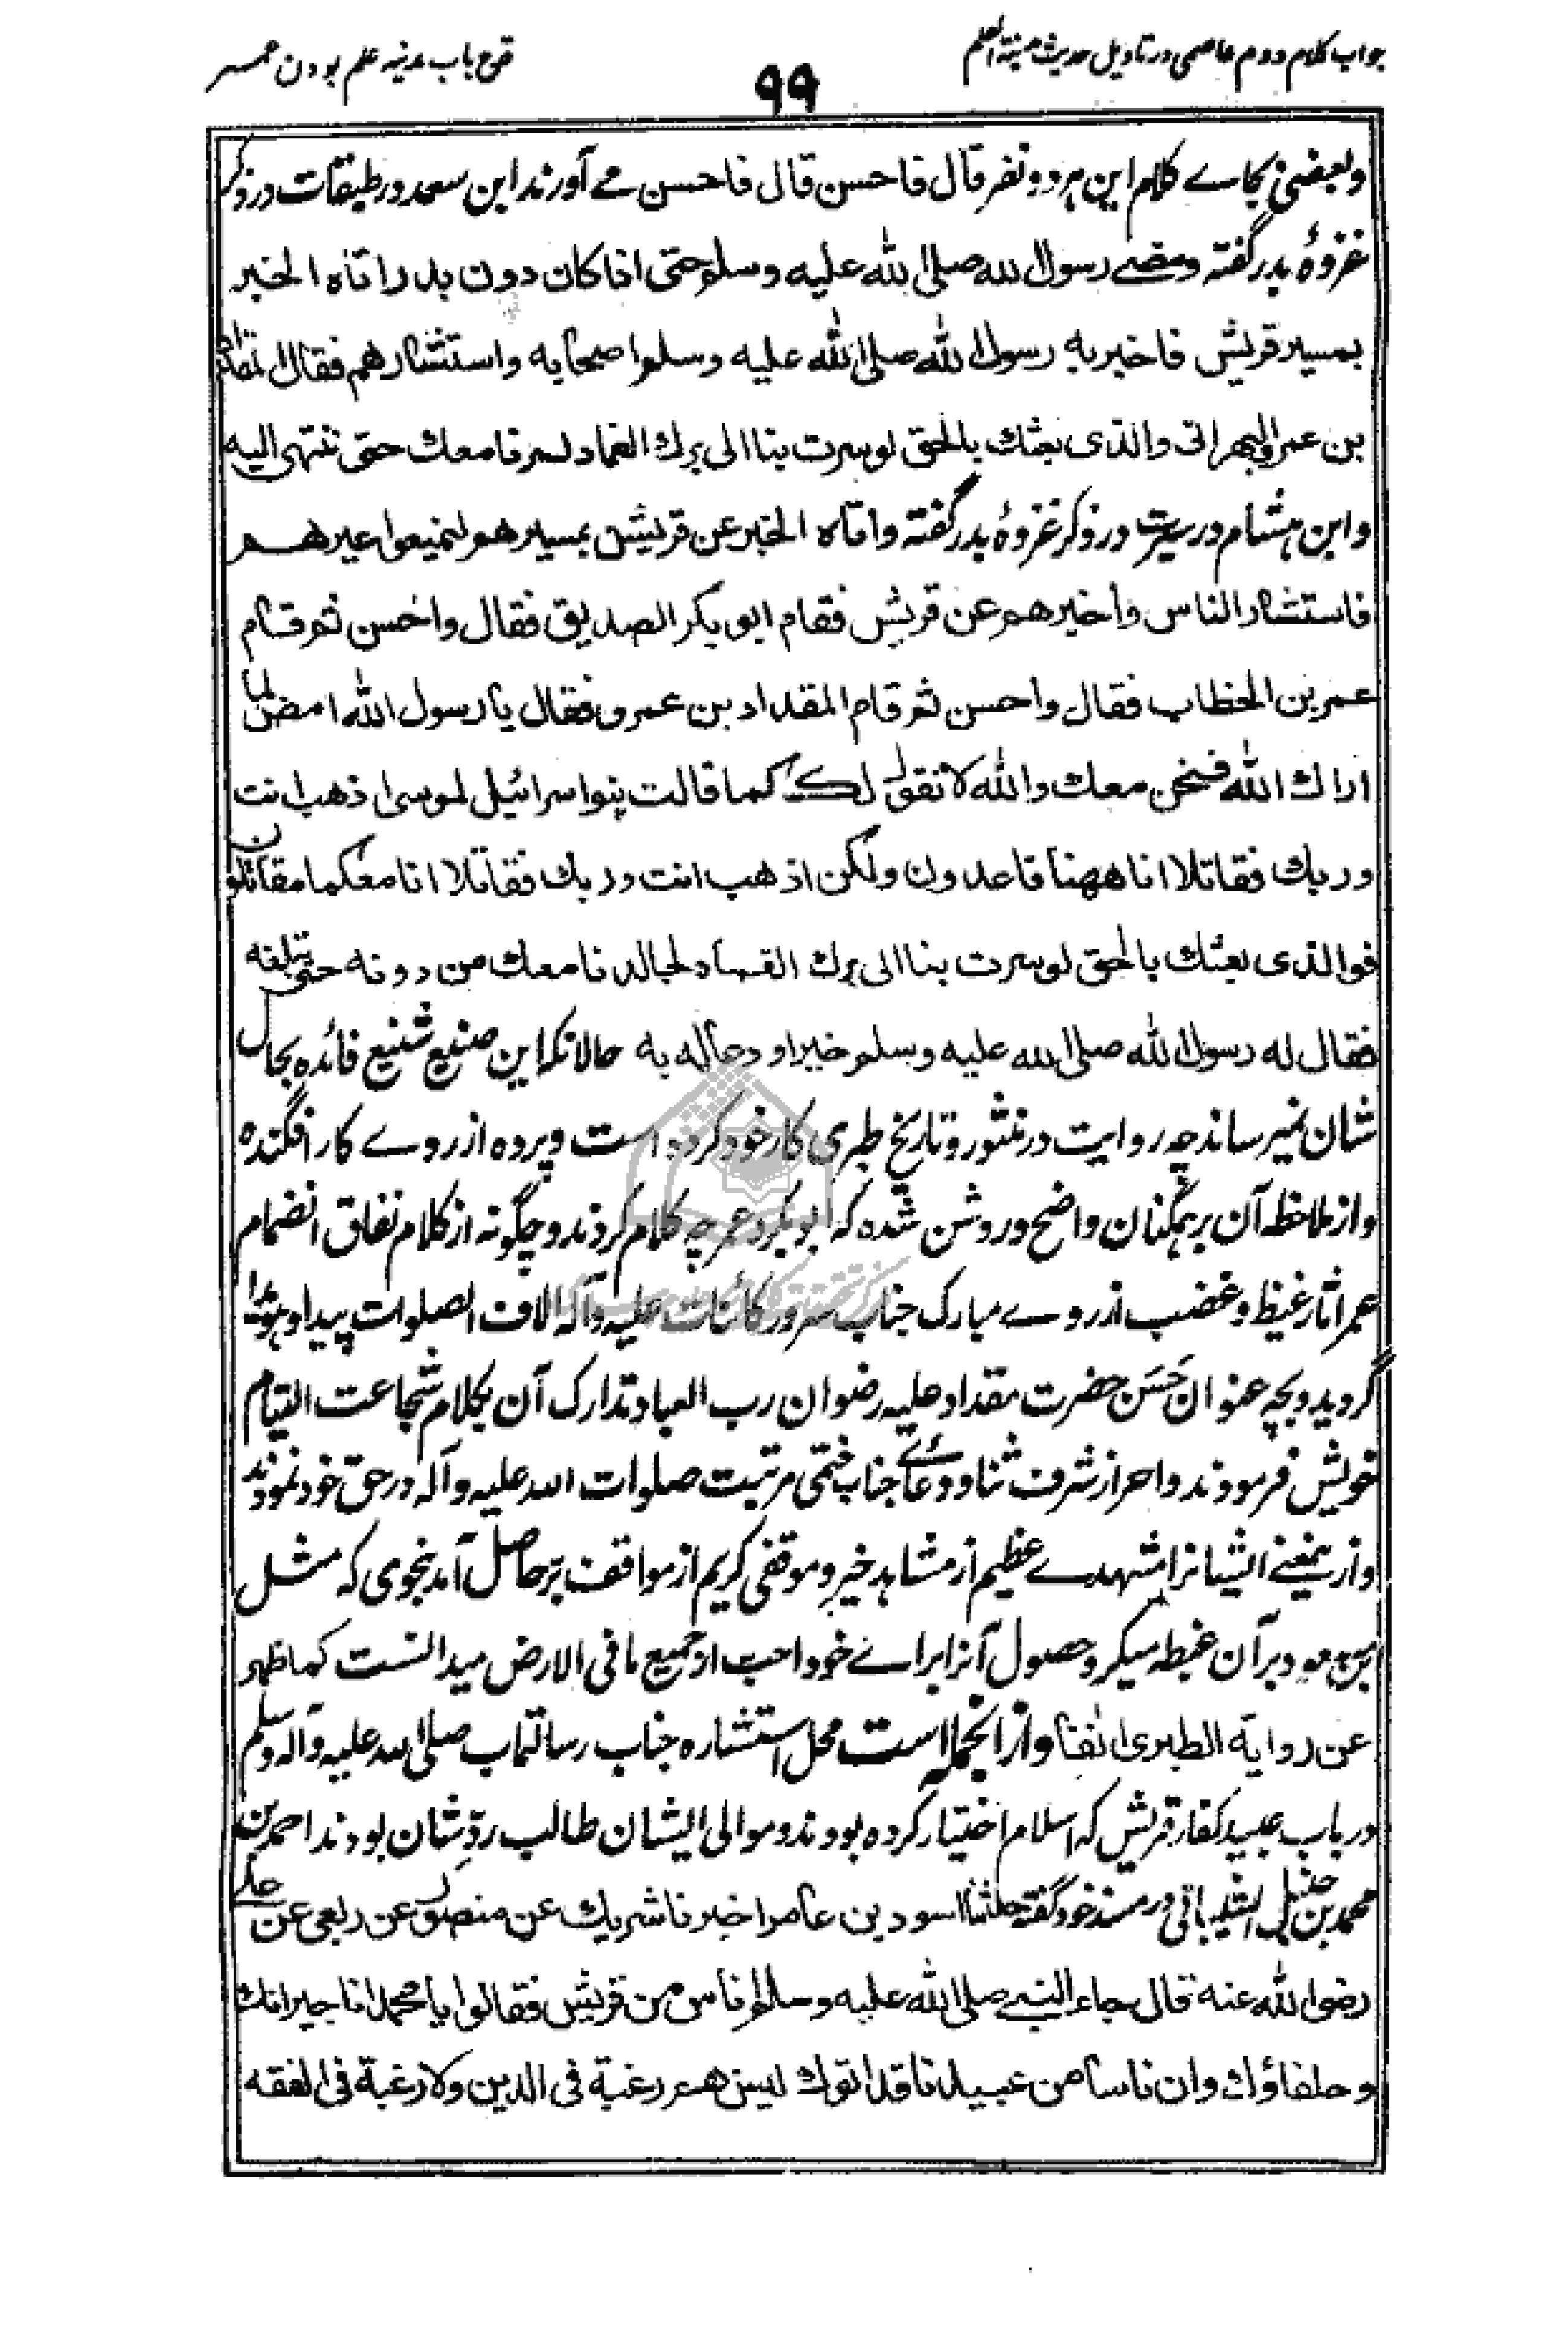 جواب کلام دوم عاصمی در تاویل حدیث مدینة العلم
۹۹
قدح باب مدینه علم بودن عمر
وبعضی بجاے کلام این هر دو نفر قال فاحسن قال فاحسن مے آورند ابن سعد در طبقات در ذکر
غزوهٔ بدر گفته ومضے رسول الله صلی الله علیه وسلم حتی اذا کان دون بدر اتاه الخبر
بمسیر قریش فاخبر به رسول الله صلی الله علیه وسلم اصحابه واستشارهم فقال المقداد
بن عمرو البهرانی والذی بعثك بالحق لو سرت بنا الی برك الغماد لسرنا معك حتی ننتهی الیه
وابن هشام در سیرت در ذکر غزوهٔ بدر گفته واتاه الخبر عن قریش بمسیرهم لیمنعوا عیرهم
فاستشار الناس واخبرهم عن قریش فقام ابو بکر الصدیق فقال واحسن ثم قام
عمر بن الخطاب فقال واحسن ثم قام المقداد بن عمرو فقال یا رسول الله امض لما
اراك الله فنحن معك والله لا نقول لك کما قالت بنو اسرائیل لموسی اذهب انت
وربك فقاتلا انا ههنا قاعدون ولکن اذهب انت وربك فقاتلا انا معکما مقاتلون
فوالذی بعثك بالحق لو سرت بنا الی برك الغماد لجالدنا معك من دونه حتی تبلغه
فقال له رسول الله صلی الله علیه وسلم خیرا ودعا له به حالانکه این صنیع شنیع فائده بحال
شان نمیرساند چه روایت در منثور و تاریخ طبری کار خود کرده است و پرده از روے کار افگنده
و از ملاحظه آن بر همگنان واضح و روشن شده که ابو بکر و عمر چه کلام کردند و چگونه از کلام نفاق انضمام
عمر آثار غیظ و غضب از روے مبارک جناب سرور کائنات علیه وآله الاف الصلوات پیدا و هویدا
گردید و بچه عنوان حَسَن حضرت مقداد علیه رضوان رب العباد تدارک آن بکلام شجاعت التیام
خویش فرمودند و احراز شرف ثنا و دعاے جناب ختمی مرتبت صلوات الله علیه وآله در حق خود نمودند
و ازینمعنے ایشانرا مشهدے عظیم از مشاهد خیر و موقفی کریم از مواقف بِرّ حاصل آمد بنحوی که مثل
ابن مسعود بر آن غبطه میکرد و حصول آنرا براے خود احب از جمیع ما فی الارض میدانست کما ظهر
عن روایة الطبری انفا و از انجمله است محل استشاره جناب رسالتمآب صلی الله علیه وآله وسلم
در باب عبید کفار قریش که اسلام اختیار کرده بودند و موالی ایشان طالب ردّ شان بودند احمد بن
محمد بن حنبل الشیبانی در مسند خود گفته حدثنا اسود بن عامر اخبرنا شریك عن منصور عن ربعی عن علی
رضی الله عنه قال جاء النبے صلی الله علیه وسلم اناس من قریش فقالوا یا محمد انا جیرانك
وحلفاؤك وان ناسا من عبیدنا قد اتوك لیس بهم رغبة فی الدین ولا رغبة فی الفقه